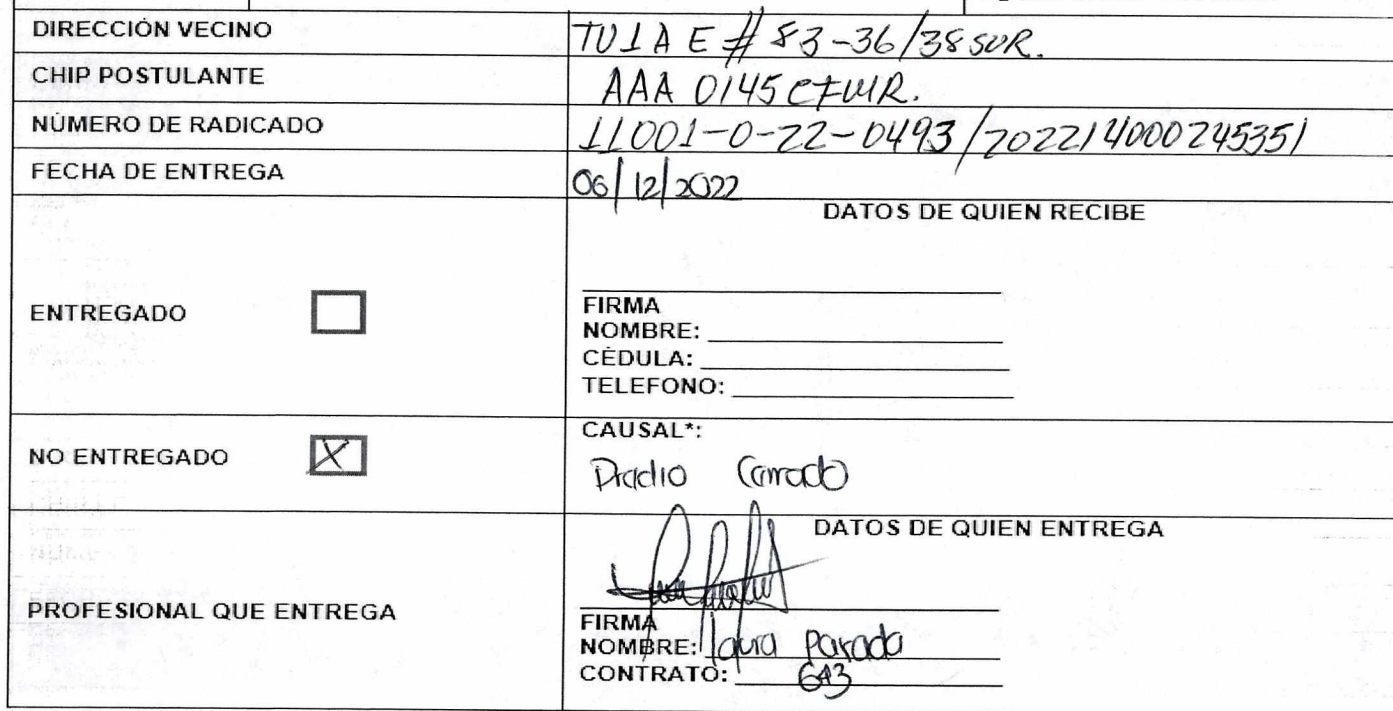 DIRECCIÓN VECINO TV 1 A E # 83-36/38 SUR.
CHIP POSTULANTE AAA 0145
NÚMERO DE RADICADO 11001-0-22-0493/20221400024535/
FECHA DE ENTREGA 06/12/2022
DATOS DE QUIEN RECIBE
ENTREGADO
FIRMA
NOMBRE:
CÉDULA:
TELEFONO:
NO ENTREGADO X
CAUSAL*:
Predio Cerrado
DATOS DE QUIEN ENTREGA
PROFESIONAL QUE ENTREGA
FIRMA
NOMBRE: laura Parada
CONTRATO: 643